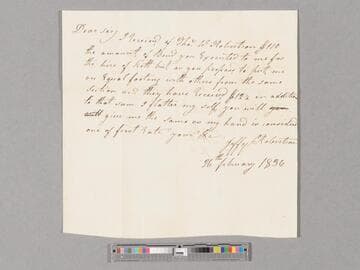 Dear sir,
I Received of Tho. W. Robertson $110
the amount of Bond you Executed to me for
the hire of Kott but as you propose to put me
on Equal footing with others from the same
section and they have Received $122 in addition
to that sum I flatter my self you will you
will give me the same as my hand is considered
one of first rate. your &c
Jeffy Robertson
26th february 1836